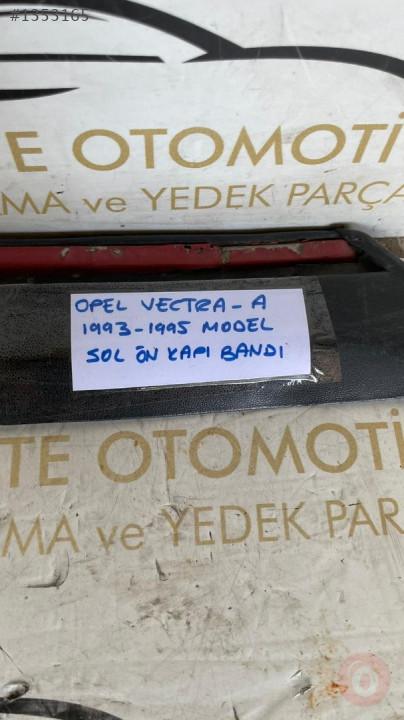 #1353165
TE OTOMOTİ
AMA ve YEDEK PARÇA
OPEL VECTRA-A
1993-1995 MODEL
SOL ÖN KAPI BANDI
TE OTOMOTİ
AMA ve YEDEK PAR